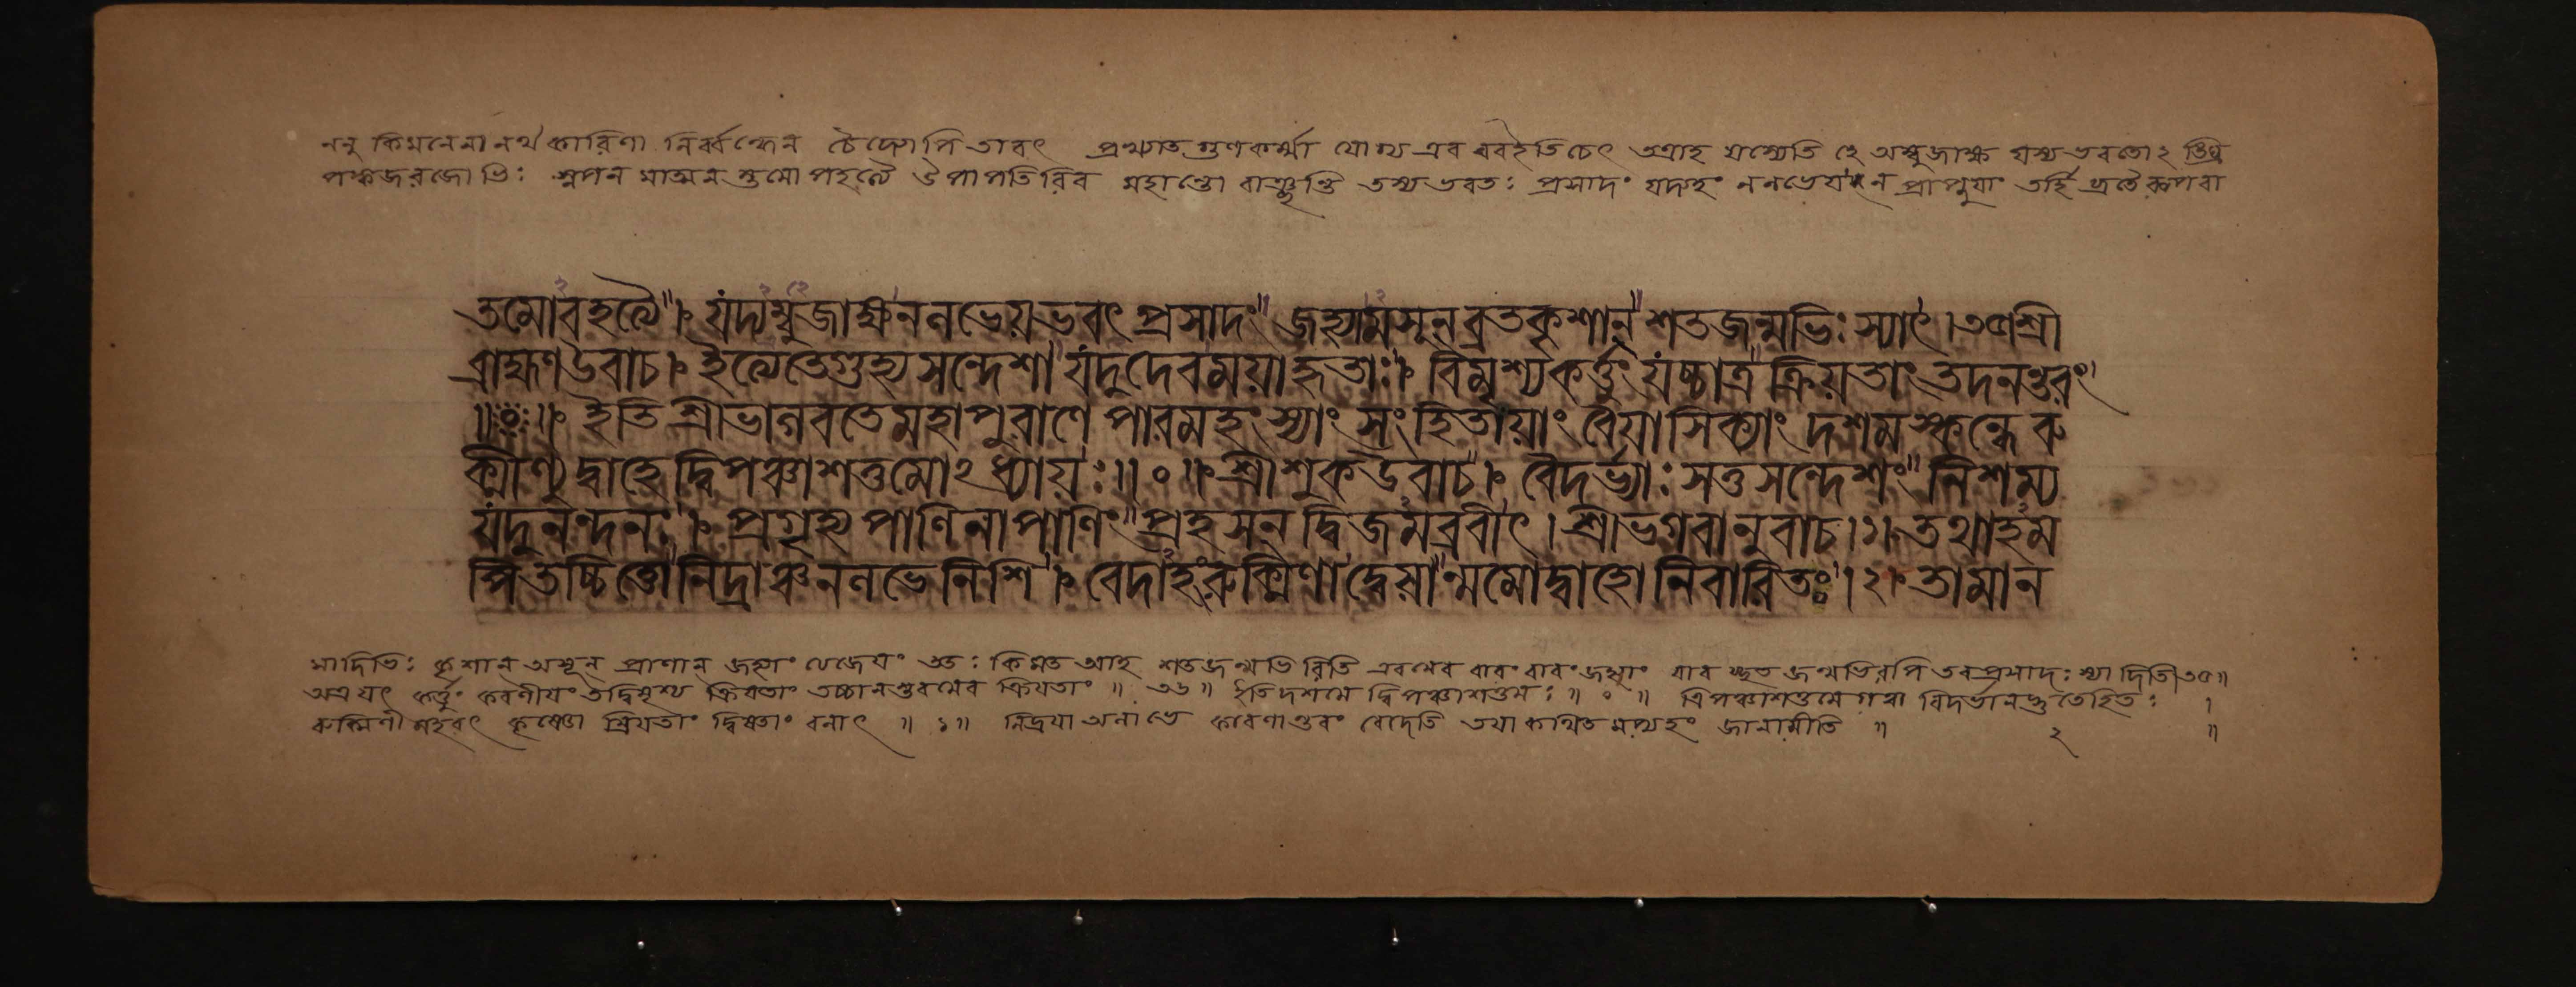 ননু কিমনেনানর্থকারিণা নির্ব্বন্ধেন চৈদ্যোপি তাবৎ প্রখ্যাত গুণকর্ম্মা যোগ্য এব বরইতিচেৎ তত্রাহ যস্যেতি হে অম্বুজাক্ষ যস্য ভবতোঽঙ্ঘ্রি
পঙ্কজরজোভিঃ স্নপন মাত্মন স্তমোপহত্যৈ উমাপতিরিব মহান্তো বাঞ্ছন্তি তস্য ভবতঃ প্রসাদং যদ্যহং নলভেয় ন প্রাপ্নুয়াং তর্হি
তমোবহত্যৈ। যর্দ্যম্বুজাক্ষনলভেয়ভবৎ প্রসাদং জহ্যামসূনব্রতকৃশান্ শতজন্মভিঃ স্যাৎ। ৩৫ শ্রী
ব্রাহ্মণ উবাচ। ইত্যেতেগুহ্যসন্দেশা যদুদেবময়াহৃতাঃ। বিমৃশ্যকর্ত্তুং যচ্চাত্র ক্রিয়তাং তদনন্তরং
॥ঃ॰ঃ॥ ইতি শ্রীভাগবতেমহাপুরাণে পারমহংস্যাং সংহিতায়াং বৈয়াসিক্যাং দশমস্কন্ধে রু
ক্মীণ্যুদ্বাহে দ্বিপঞ্চাশত্তমোঽধ্যায়ঃ॥ ॰॥ শ্রীশুকউবাচ। বৈদর্ভ্যাঃ সতুসন্দেশং নিশম্য
যদুনন্দনঃ। প্রগৃহ্য পাণিনাপাণিং প্রহসন্ দ্বিজমব্রবীৎ। শ্রীভগবানুবাচ।১। তথাহম
পি তচ্চিত্তোনিদ্রাঞ্চনলভে নিশি। বেদাহংরুক্মিণাদ্বেষান্মমোদ্বাহো নিবারিতঃ।২। তামান
মাদিভিঃ কৃশান্ অসূন্ প্রাণান্ জহ্যাং ত্যজেয়ং ততঃ কিমত আহ শতজন্মভিরিতি এবমেব বারং বারং জহ্যাং যাব চ্ছত জন্মভিরপি তবপ্রসাদঃ স্যাদিতি ৩৫॥
অত্র যৎ কর্ত্তুং করণীয়ং তদ্বিমৃশ্য ক্রিয়তাং তচ্চানন্তরমেব ক্রিয়তাং ॥ ৩৬ ॥ ইতিদশমে দ্বিপঞ্চাশত্তমঃ॥ ॰ ॥ ত্রিপঞ্চাশত্তমে গত্বা বিদর্ভানদ্ভুতেহিতঃ ।
রুক্মিণী মহরৎ কৃষ্ণো দ্বিষতাং বলাৎ ॥ ১॥ নিদ্রয়া অলাভে কারণান্তরং বেদেতি তথা জানামীতি ॥ ২ ॥